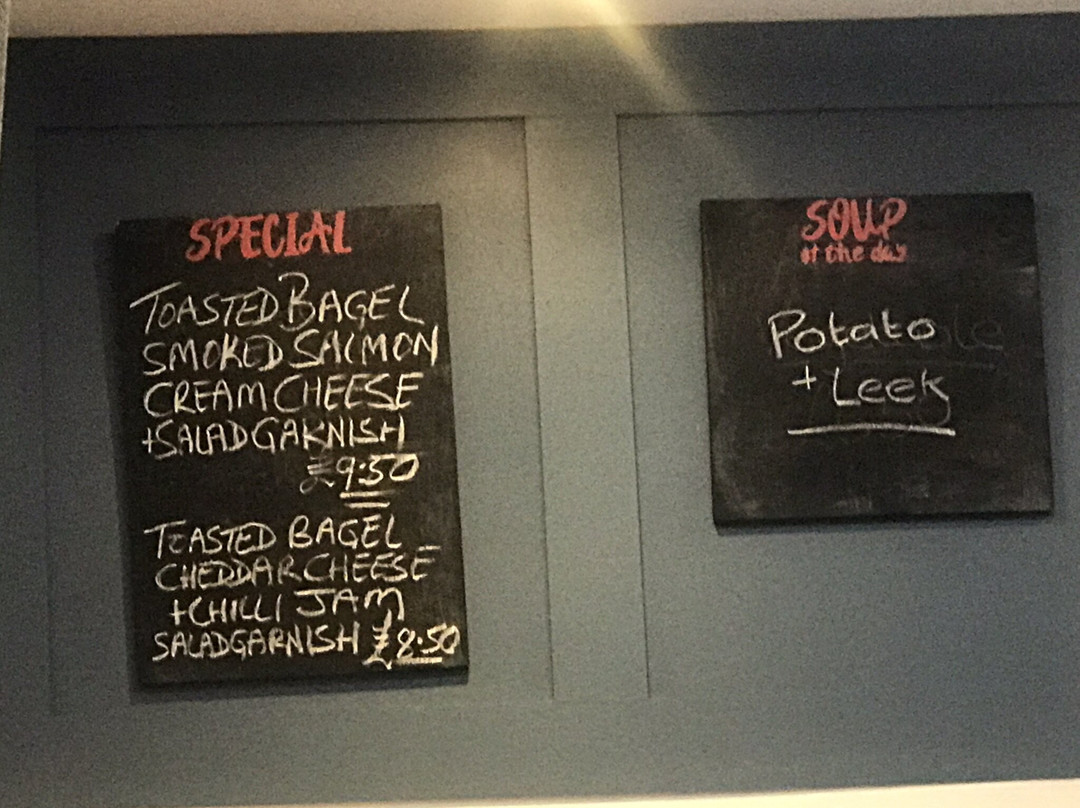 SPECIAL
TOASTED BAGEL
SMOKED SALMON
CREAM CHEESE
+SALAD GARNISH
£9.50
TOASTED BAGEL
CHEDDAR CHEESE
+CHILLI JAM
SALAD GARNISH £8.50
SOUP
of the day
Potato
+ Leek